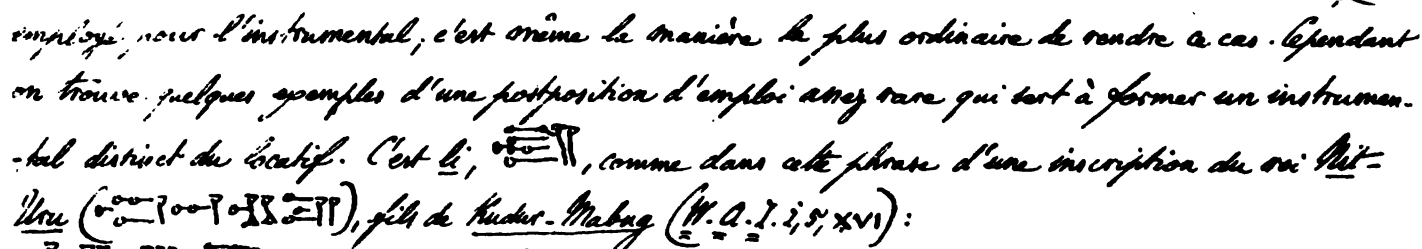 employé pour l'instrumental; c'est même la manière la plus ordinaire de rendre ce cas. Cependant
on trouve quelques exemples d'une postposition d'emploi assez rare qui sert à former un instrumen-
-tal distinct du locatif. C'est li, , comme dans cette phrase d'une inscription du roi Nit-
Uru ( ), fils de Kudur-Mabug (W.A.I. i, 5, XVI):